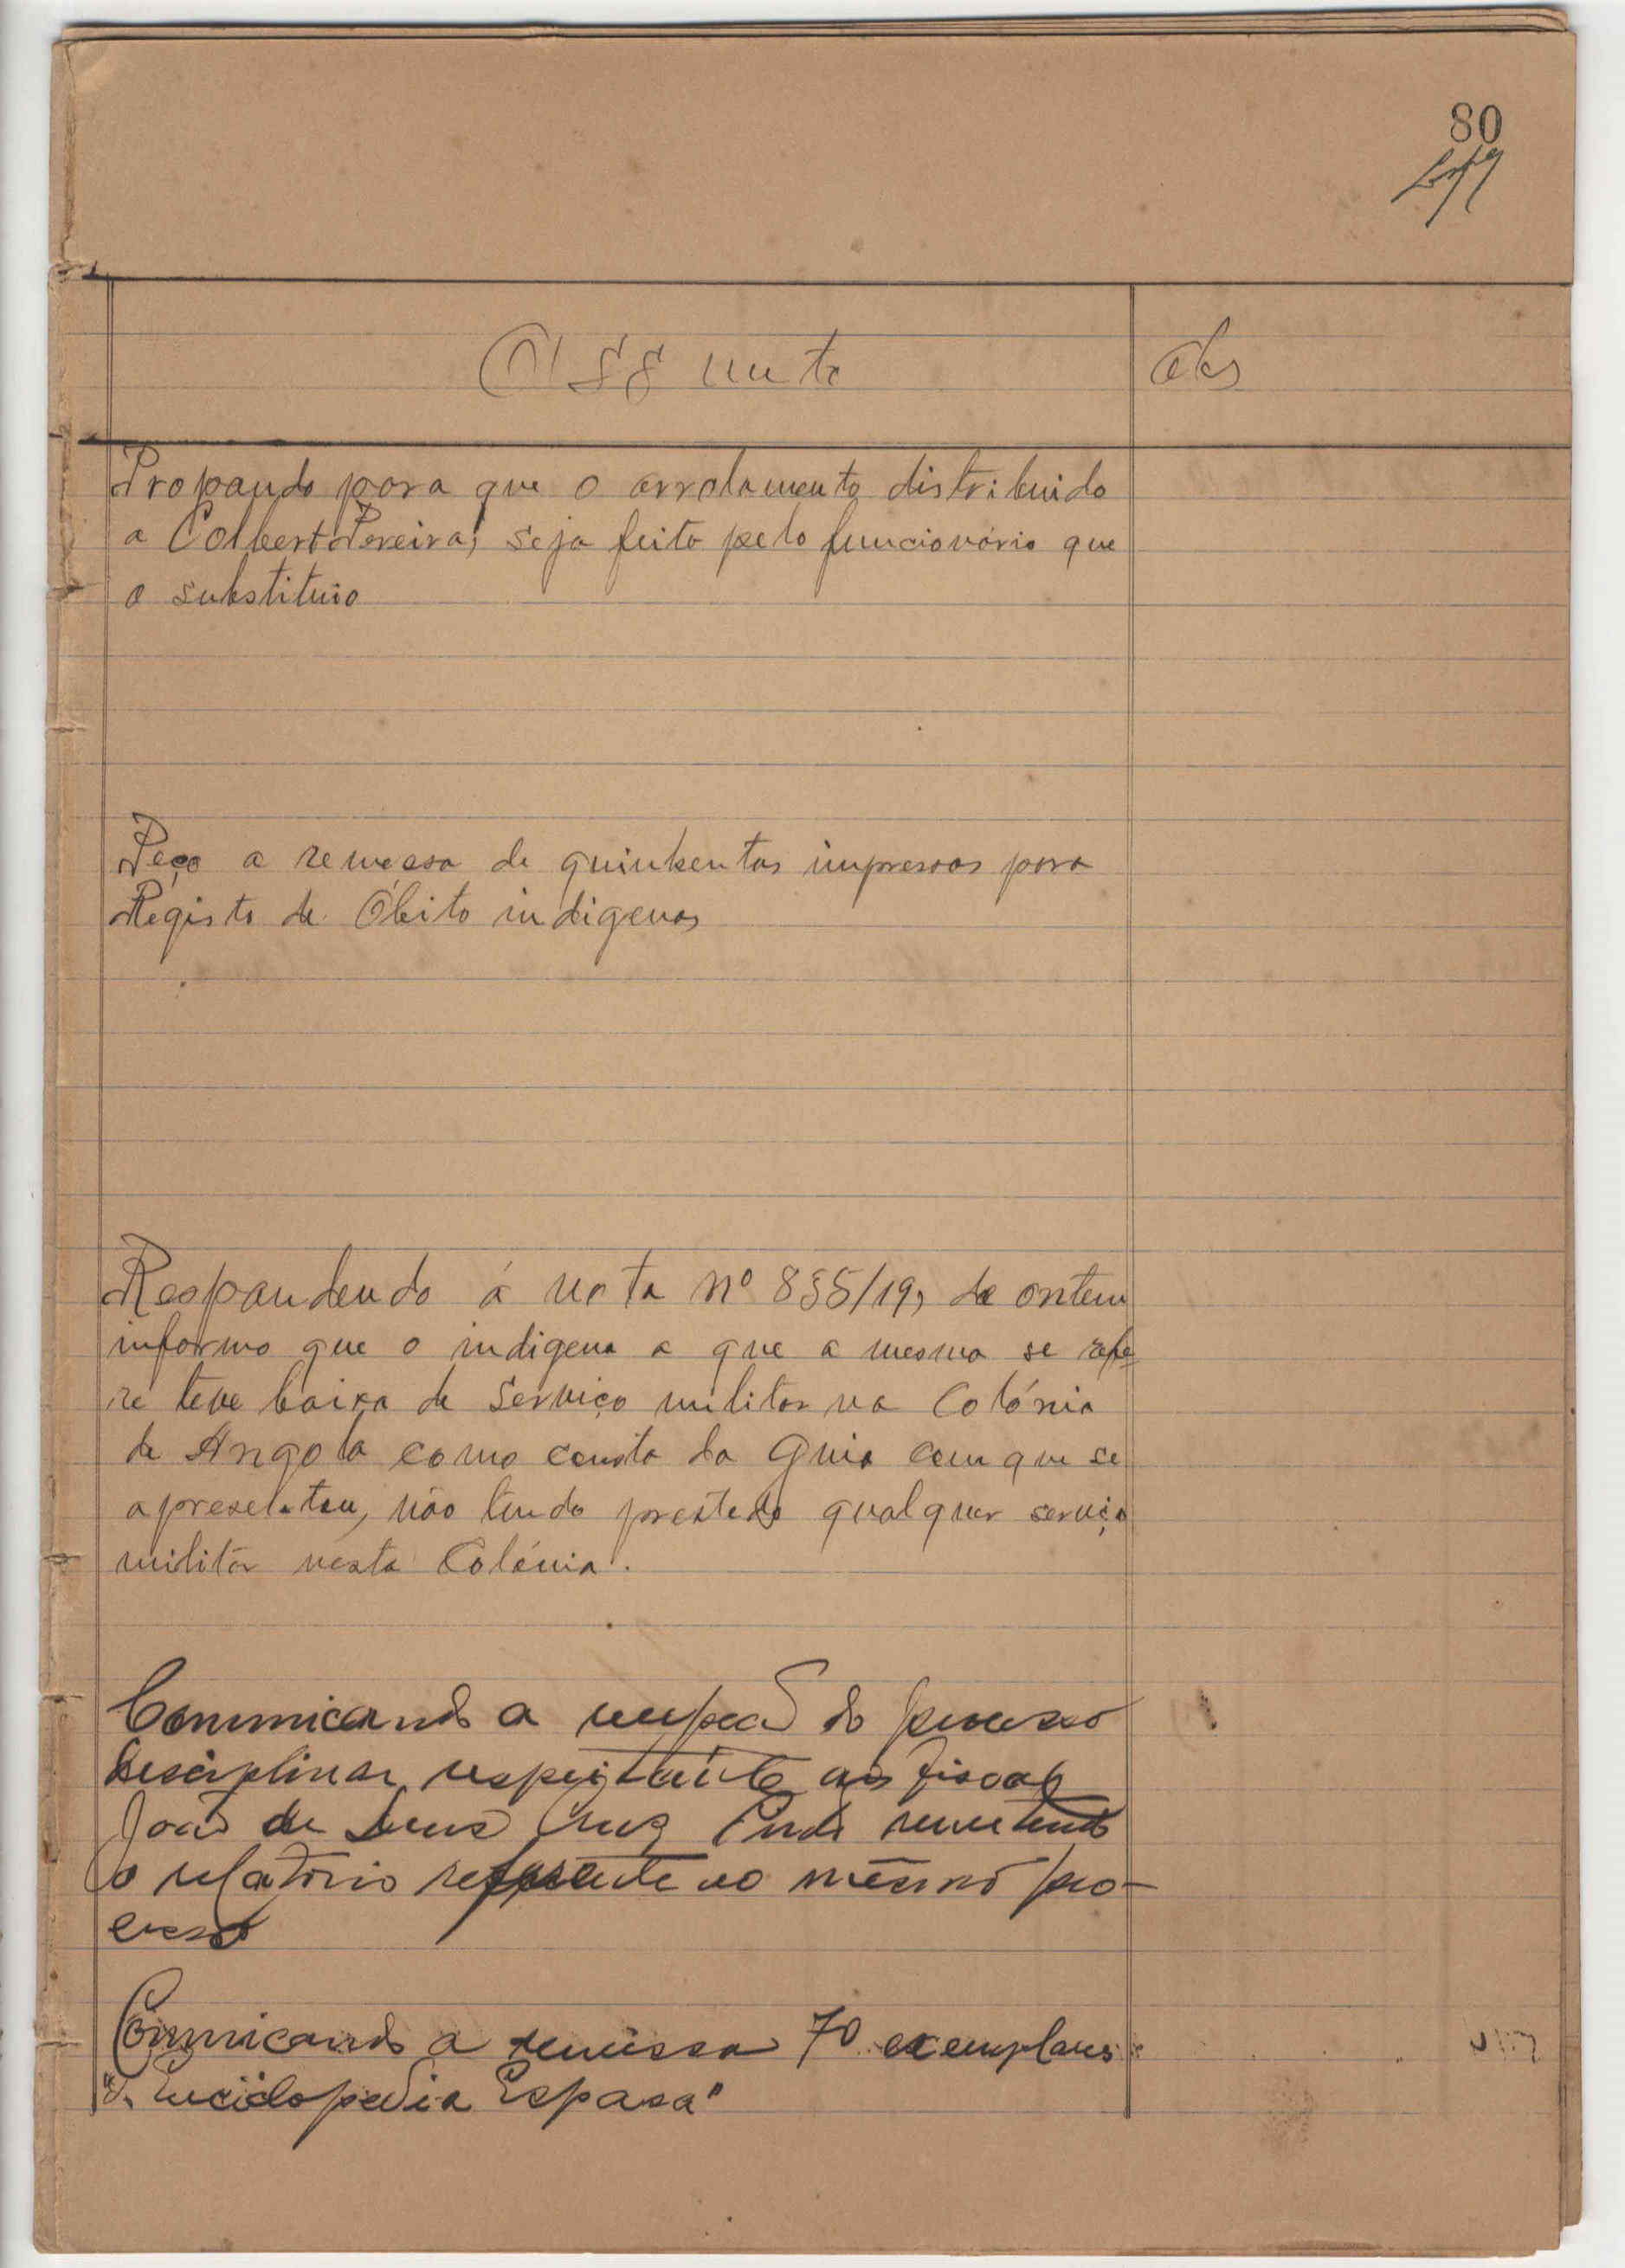 80
Assunto
Obs
Propondo para que o arrolamento distribuido
a Colbert Pereira, seja feito pelo funcionário que
o substituio
Peço a remessa de quinhentos impressos para
Registo de Óbito indigenas
Respondendo á nota nº 855/19, de ontem
informo que o indigena a que a mesma se refe
re teve baixa de serviço militar na Colónia
de Angola como consta da Guia com que se
apresentou, não tendo prestado qualquer serviço
militar nesta Colónia.
Comunicando a do processo
Disciplinar respeitante ao fiscal
João de Deus Cruz remetendo
o relatório referente ao mesmo pro-
cesso
Comunicando a remissa 70 exemplares
"d. Enciclopedia Espasa"